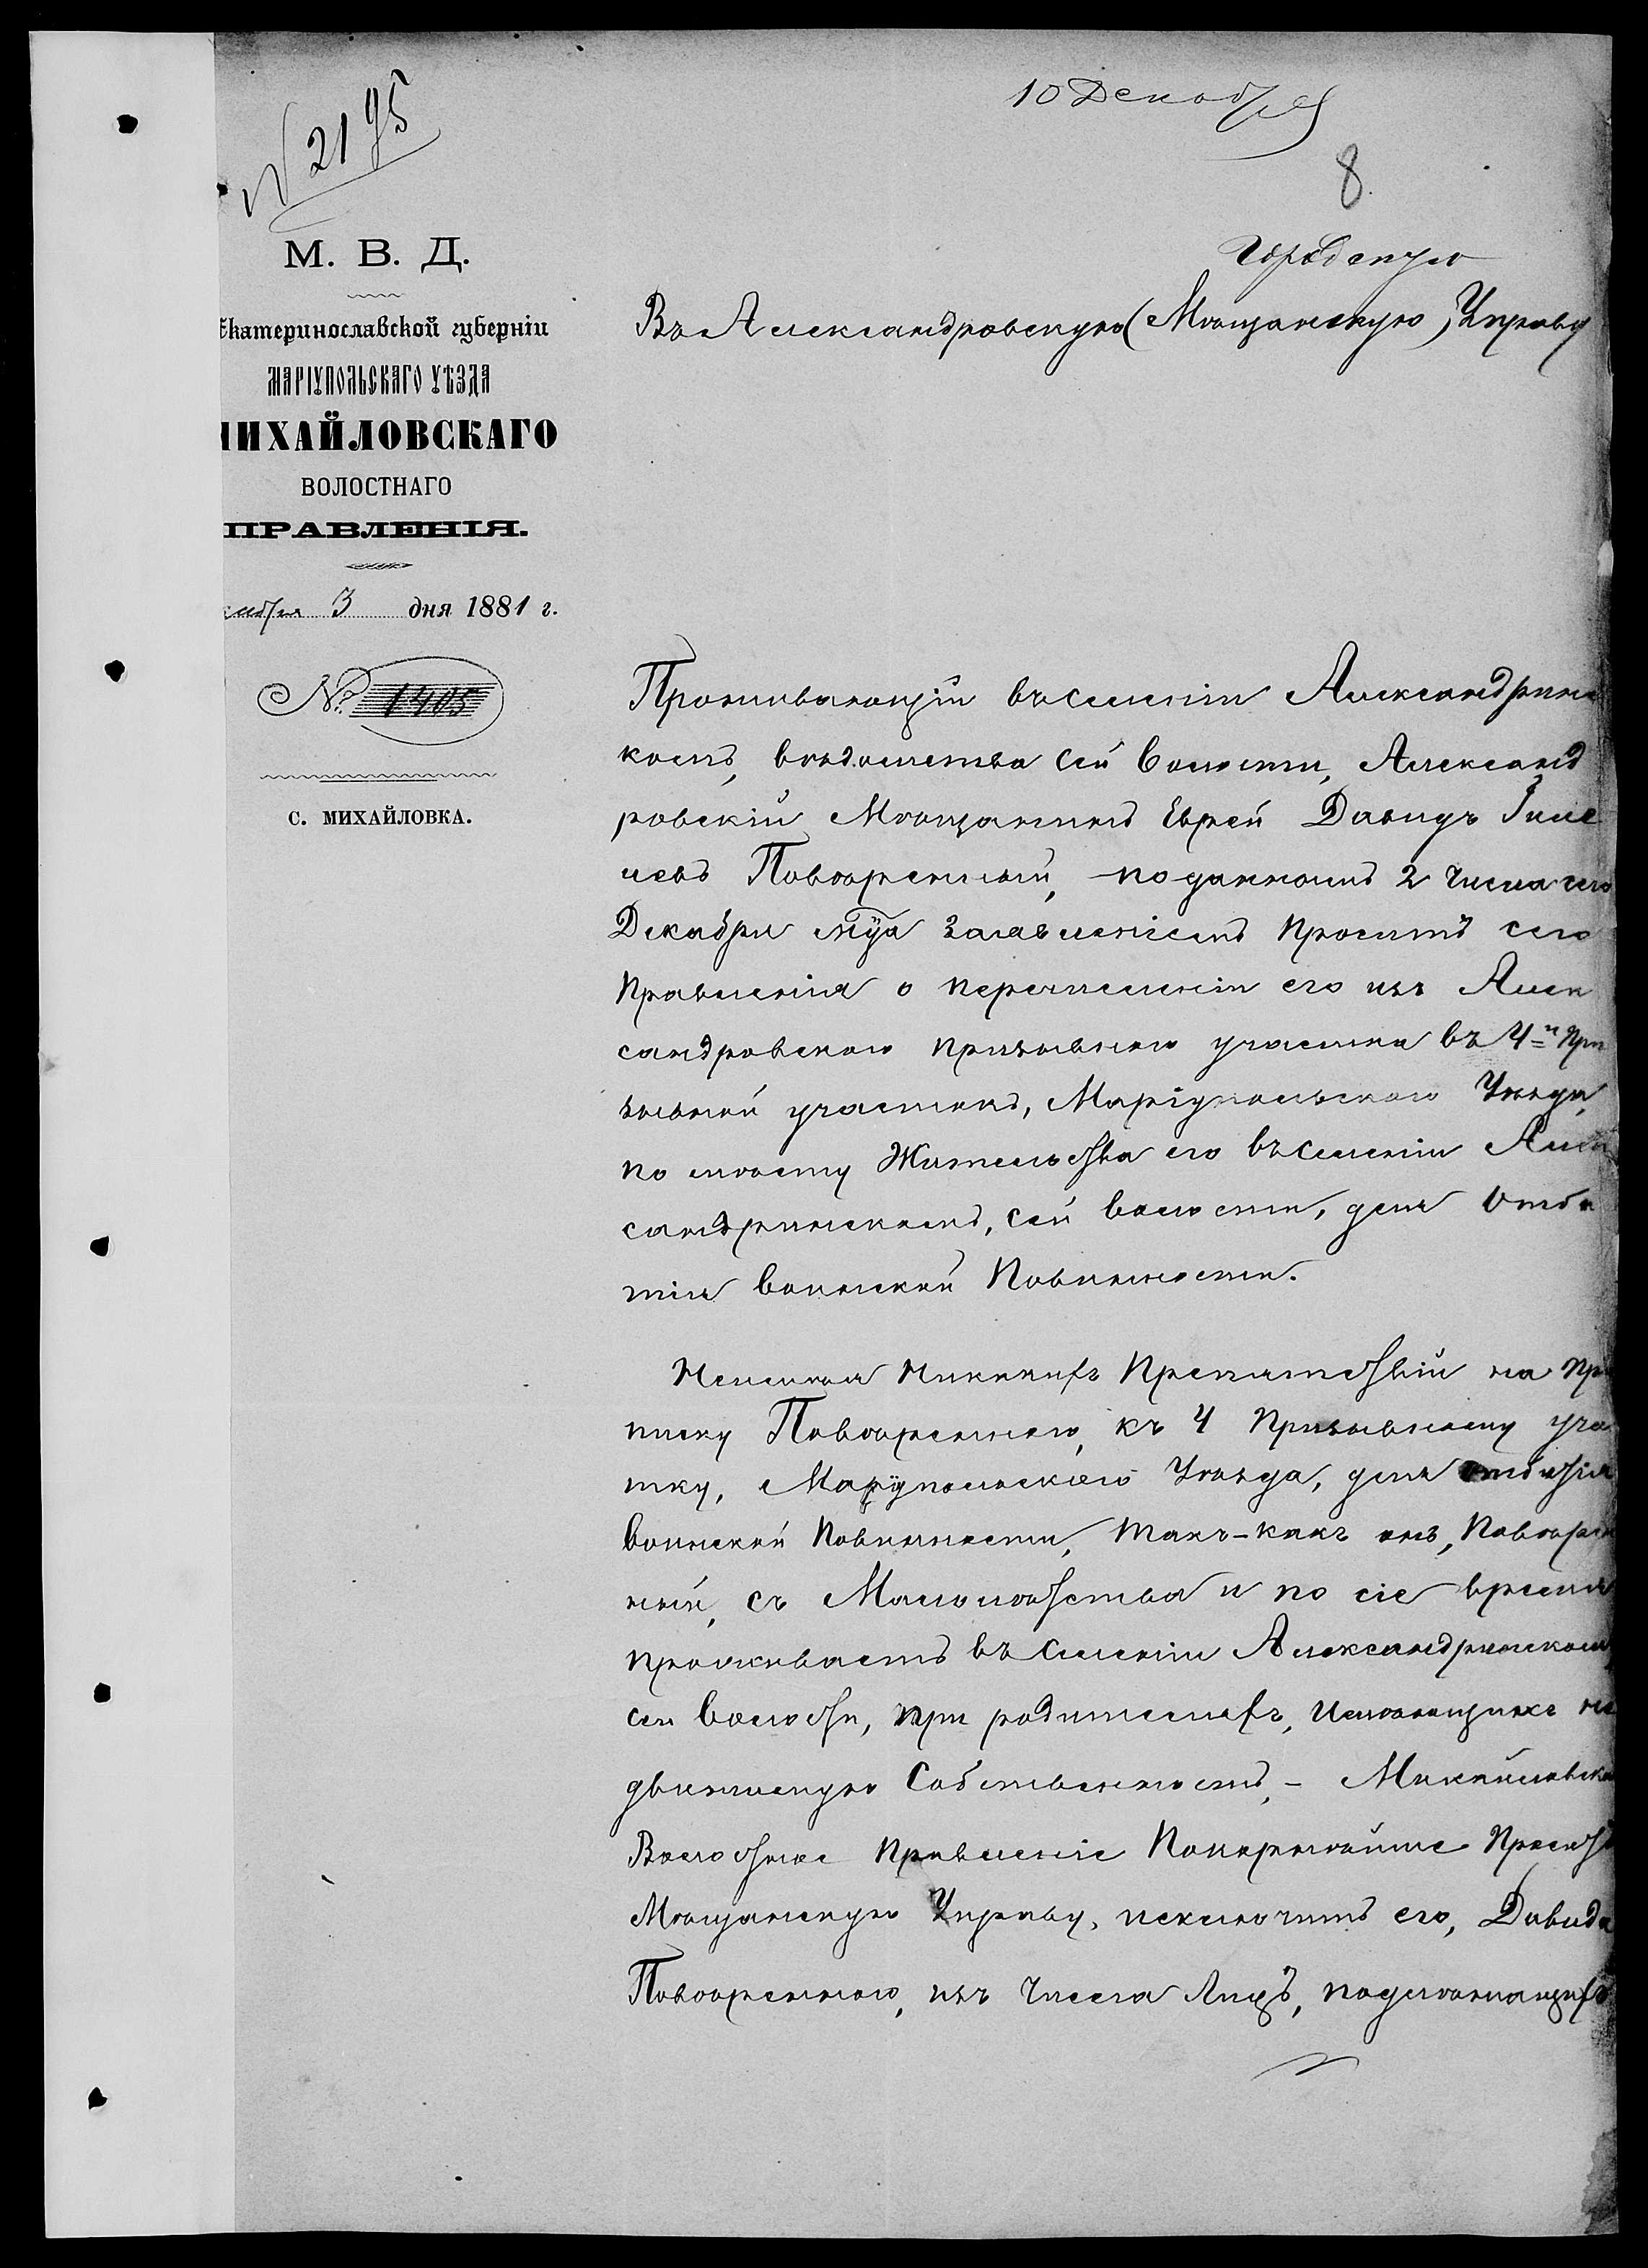 10 Декабря
№ 2195
8.
М. В. Д.
Екатеринославской губерніи
МАРІУПОЛЬСКАГО УѢЗДА
МИХАЙЛОВСКАГО
ВОЛОСТНАГО
ПРАВЛЕНІЯ.
кабря 3 дня 1881 г.
№ 1405
С. МИХАЙЛОВКА.
Городскую
Въ Александровскую (Мѣщанскую) Управу
Проживающій въ селеніи Александринс
комъ, вѣдомства сей волости, Александ
ровскій Мѣщанинъ Еврей Давидъ
левъ Поваренный, поданнымъ 2 числа сего
Декабря мца заявленіемъ проситъ сего
Правленія о перечисленіи его изъ Алек
сандровскаго призывнаго участка въ 4й при
зывной участокъ, Маріупольскаго Уѣзда,
по мѣсту Жительства его въ селеніи Алек
сандринскомъ, сей волости, для отбы
тія воинской Повинности.
Неимѣя никакихъ Препятствій на при
писку Повареннаго, къ 4 Призывному учас
тку, Маріупольскаго Уѣзда, для отбытія
воинской Повинности, такъ-какъ онъ, Поварен
ный, съ Малолѣтства и по сіе время
проживаетъ въ селеніи Александринскомъ
сей волости, при родителяхъ, имѣющихъ не
движимую Собственность, - Михайловское
Волостное Правленіе Покорнѣйше Проситъ
Мѣщанскую Управу, исключить его, Давида
Повареннаго, изъ числа Лицъ, подлежащихъ